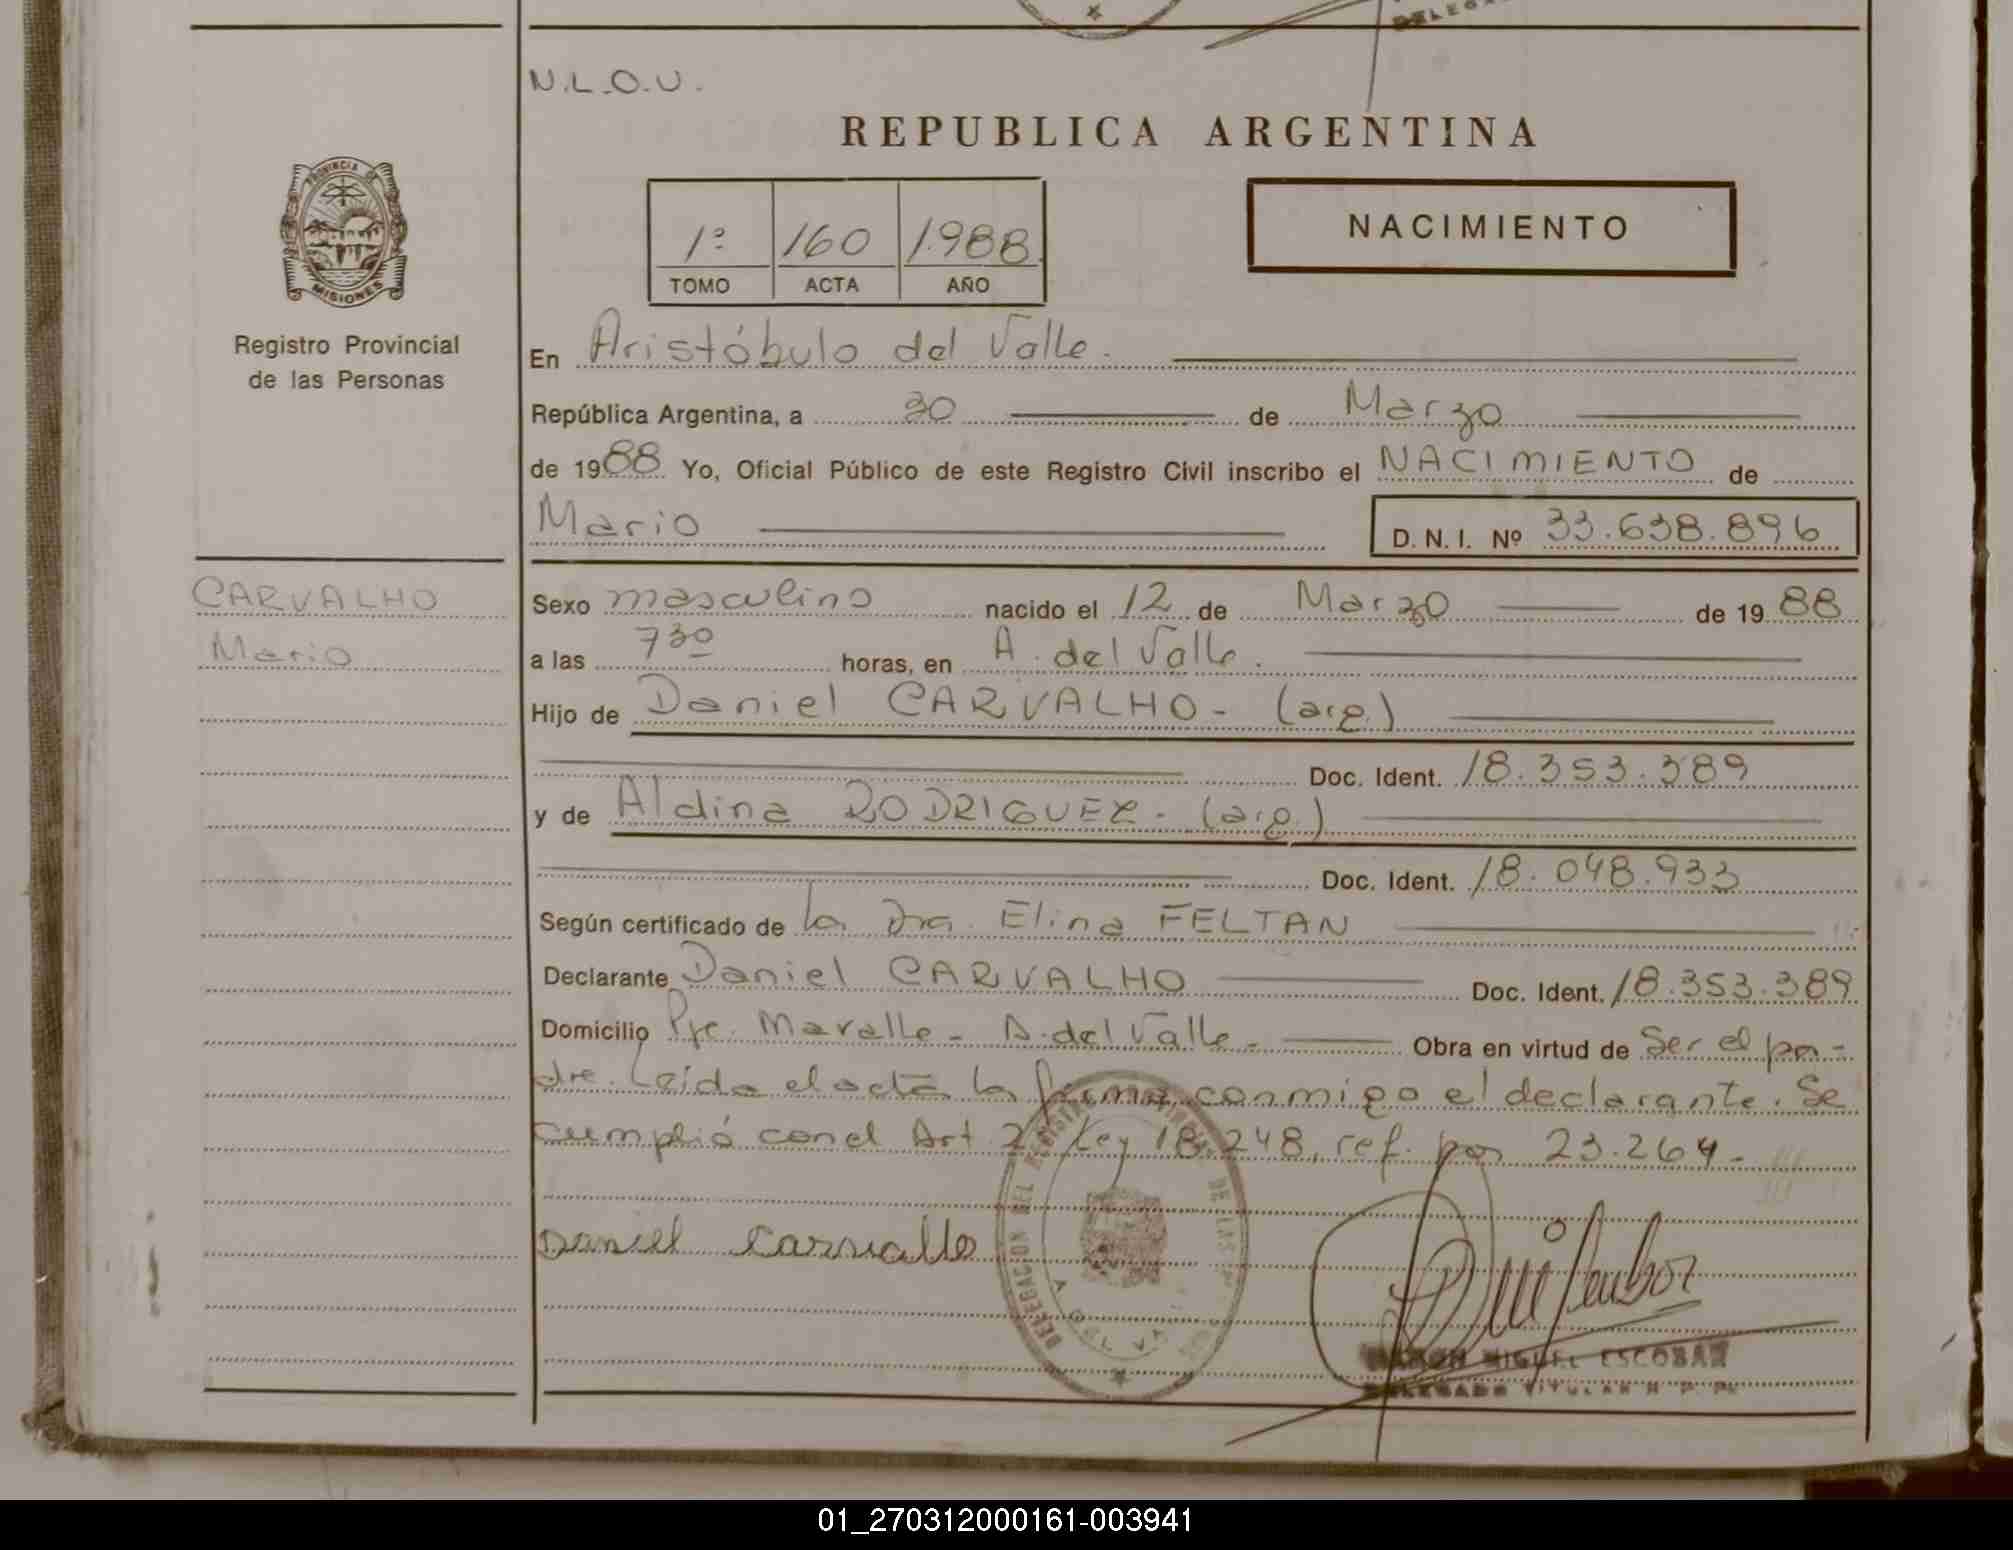 DELEGA
N.L.O.U.
REPUBLICA ARGENTINA
PROVINCIA DE
MISIONES
Registro Provincial
de las Personas
1º 160 1.988
TOMO ACTA AÑO
NACIMIENTO
En Aristóbulo del Valle.
República Argentina, a 30 de Marzo
de 1988 Yo, Oficial Público de este Registro Civil inscribo el NACIMIENTO de
Mario D.N.I. Nº 33.638.896
CARVALHO
Mario
Sexo masculino nacido el 12 de Marzo de 1988
a las 730 horas, en A. del Valle.
Hijo de Daniel CARVALHO - (arg.)
Doc. Ident. 18.353.389
y de Aldina RODRIGUEZ - (arg.)
Doc. Ident. 18.048.933
Según certificado de la Dra. Elina FELTAN
Declarante Daniel CARVALHO Doc. Ident. 18.353.389
Domicilio Pje. Maralle - A. del Valle - Obra en virtud de Ser el pa-
dre. Leida el acta la firma conmigo el declarante. Se
cumplió con el Art. 2 Ley 18.248, ref. por 23.264 -
Daniel Carvallo
DELEGACION DEL REGISTRO PROVINCIAL DE LAS
A. DEL VA
MIGUEL ESCOBAR
DELEGADO TITULAR R. P. P.
01_270312000161-003941